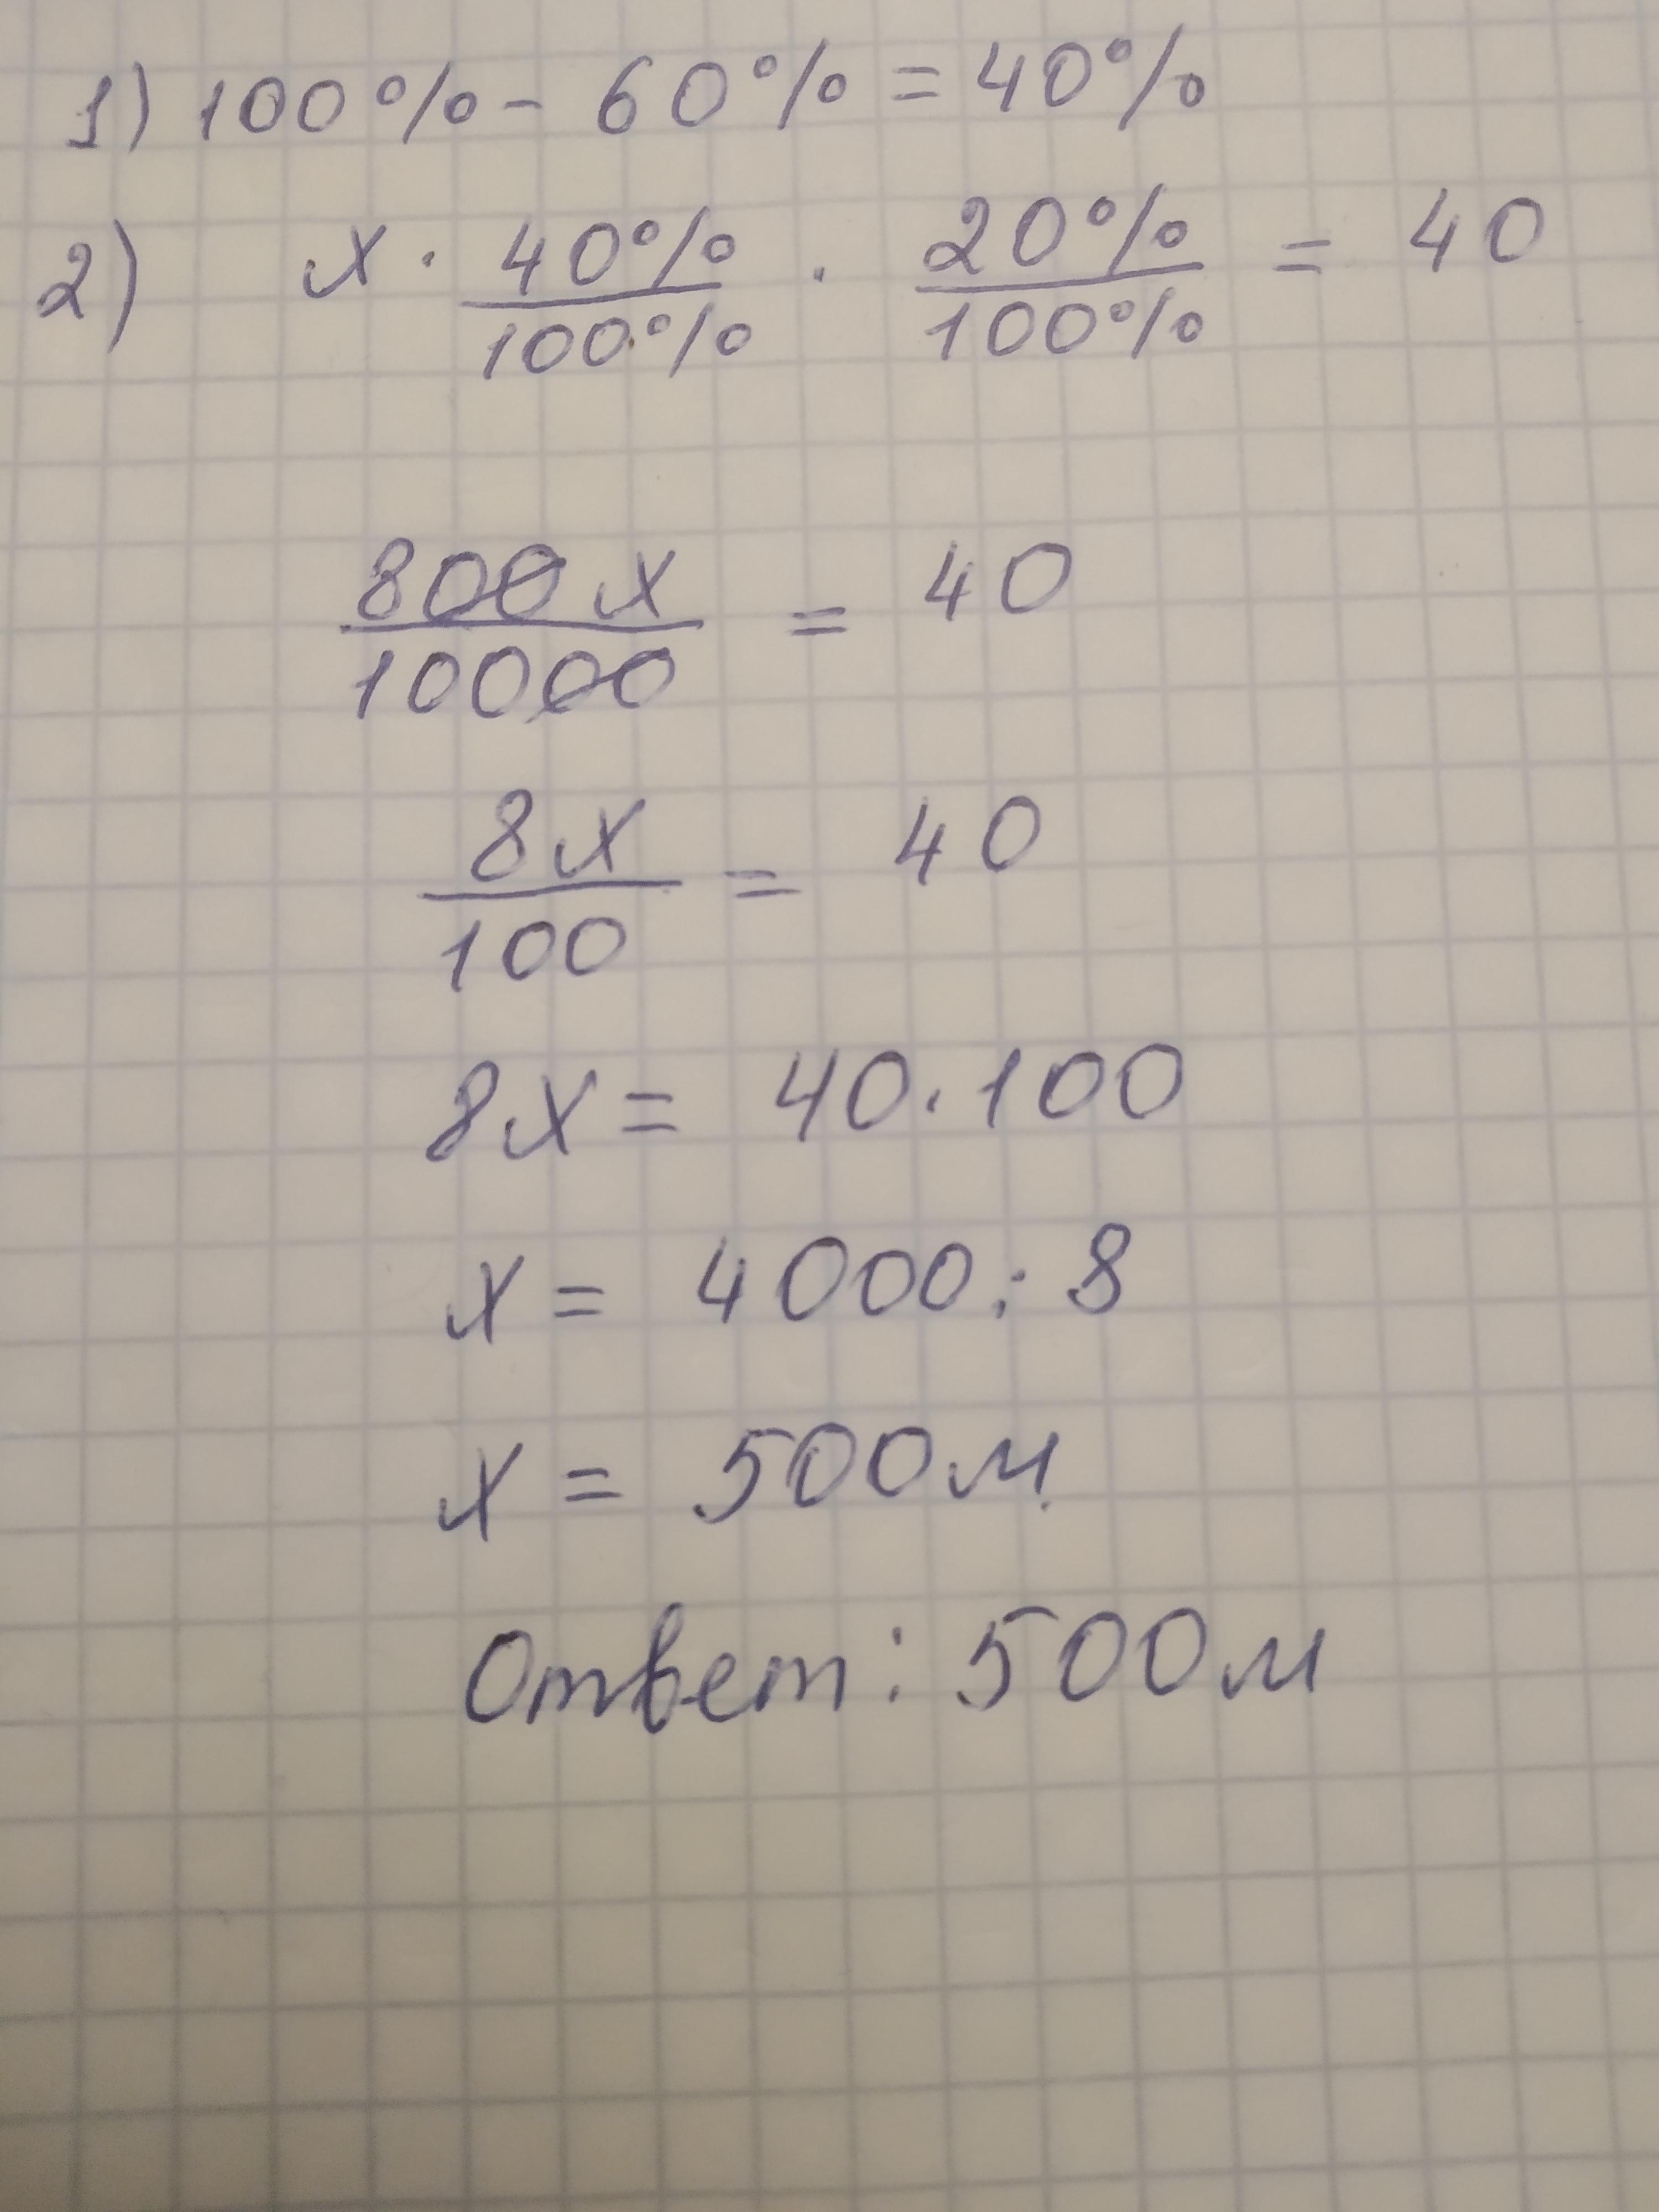 1) 100% - 60% = 40%
2) x · 40%/100% · 20%/100% = 40
800x/10000 = 40
8x/100 = 40
8x = 40 · 100
x = 4000 : 8
x = 500м
Ответ: 500м